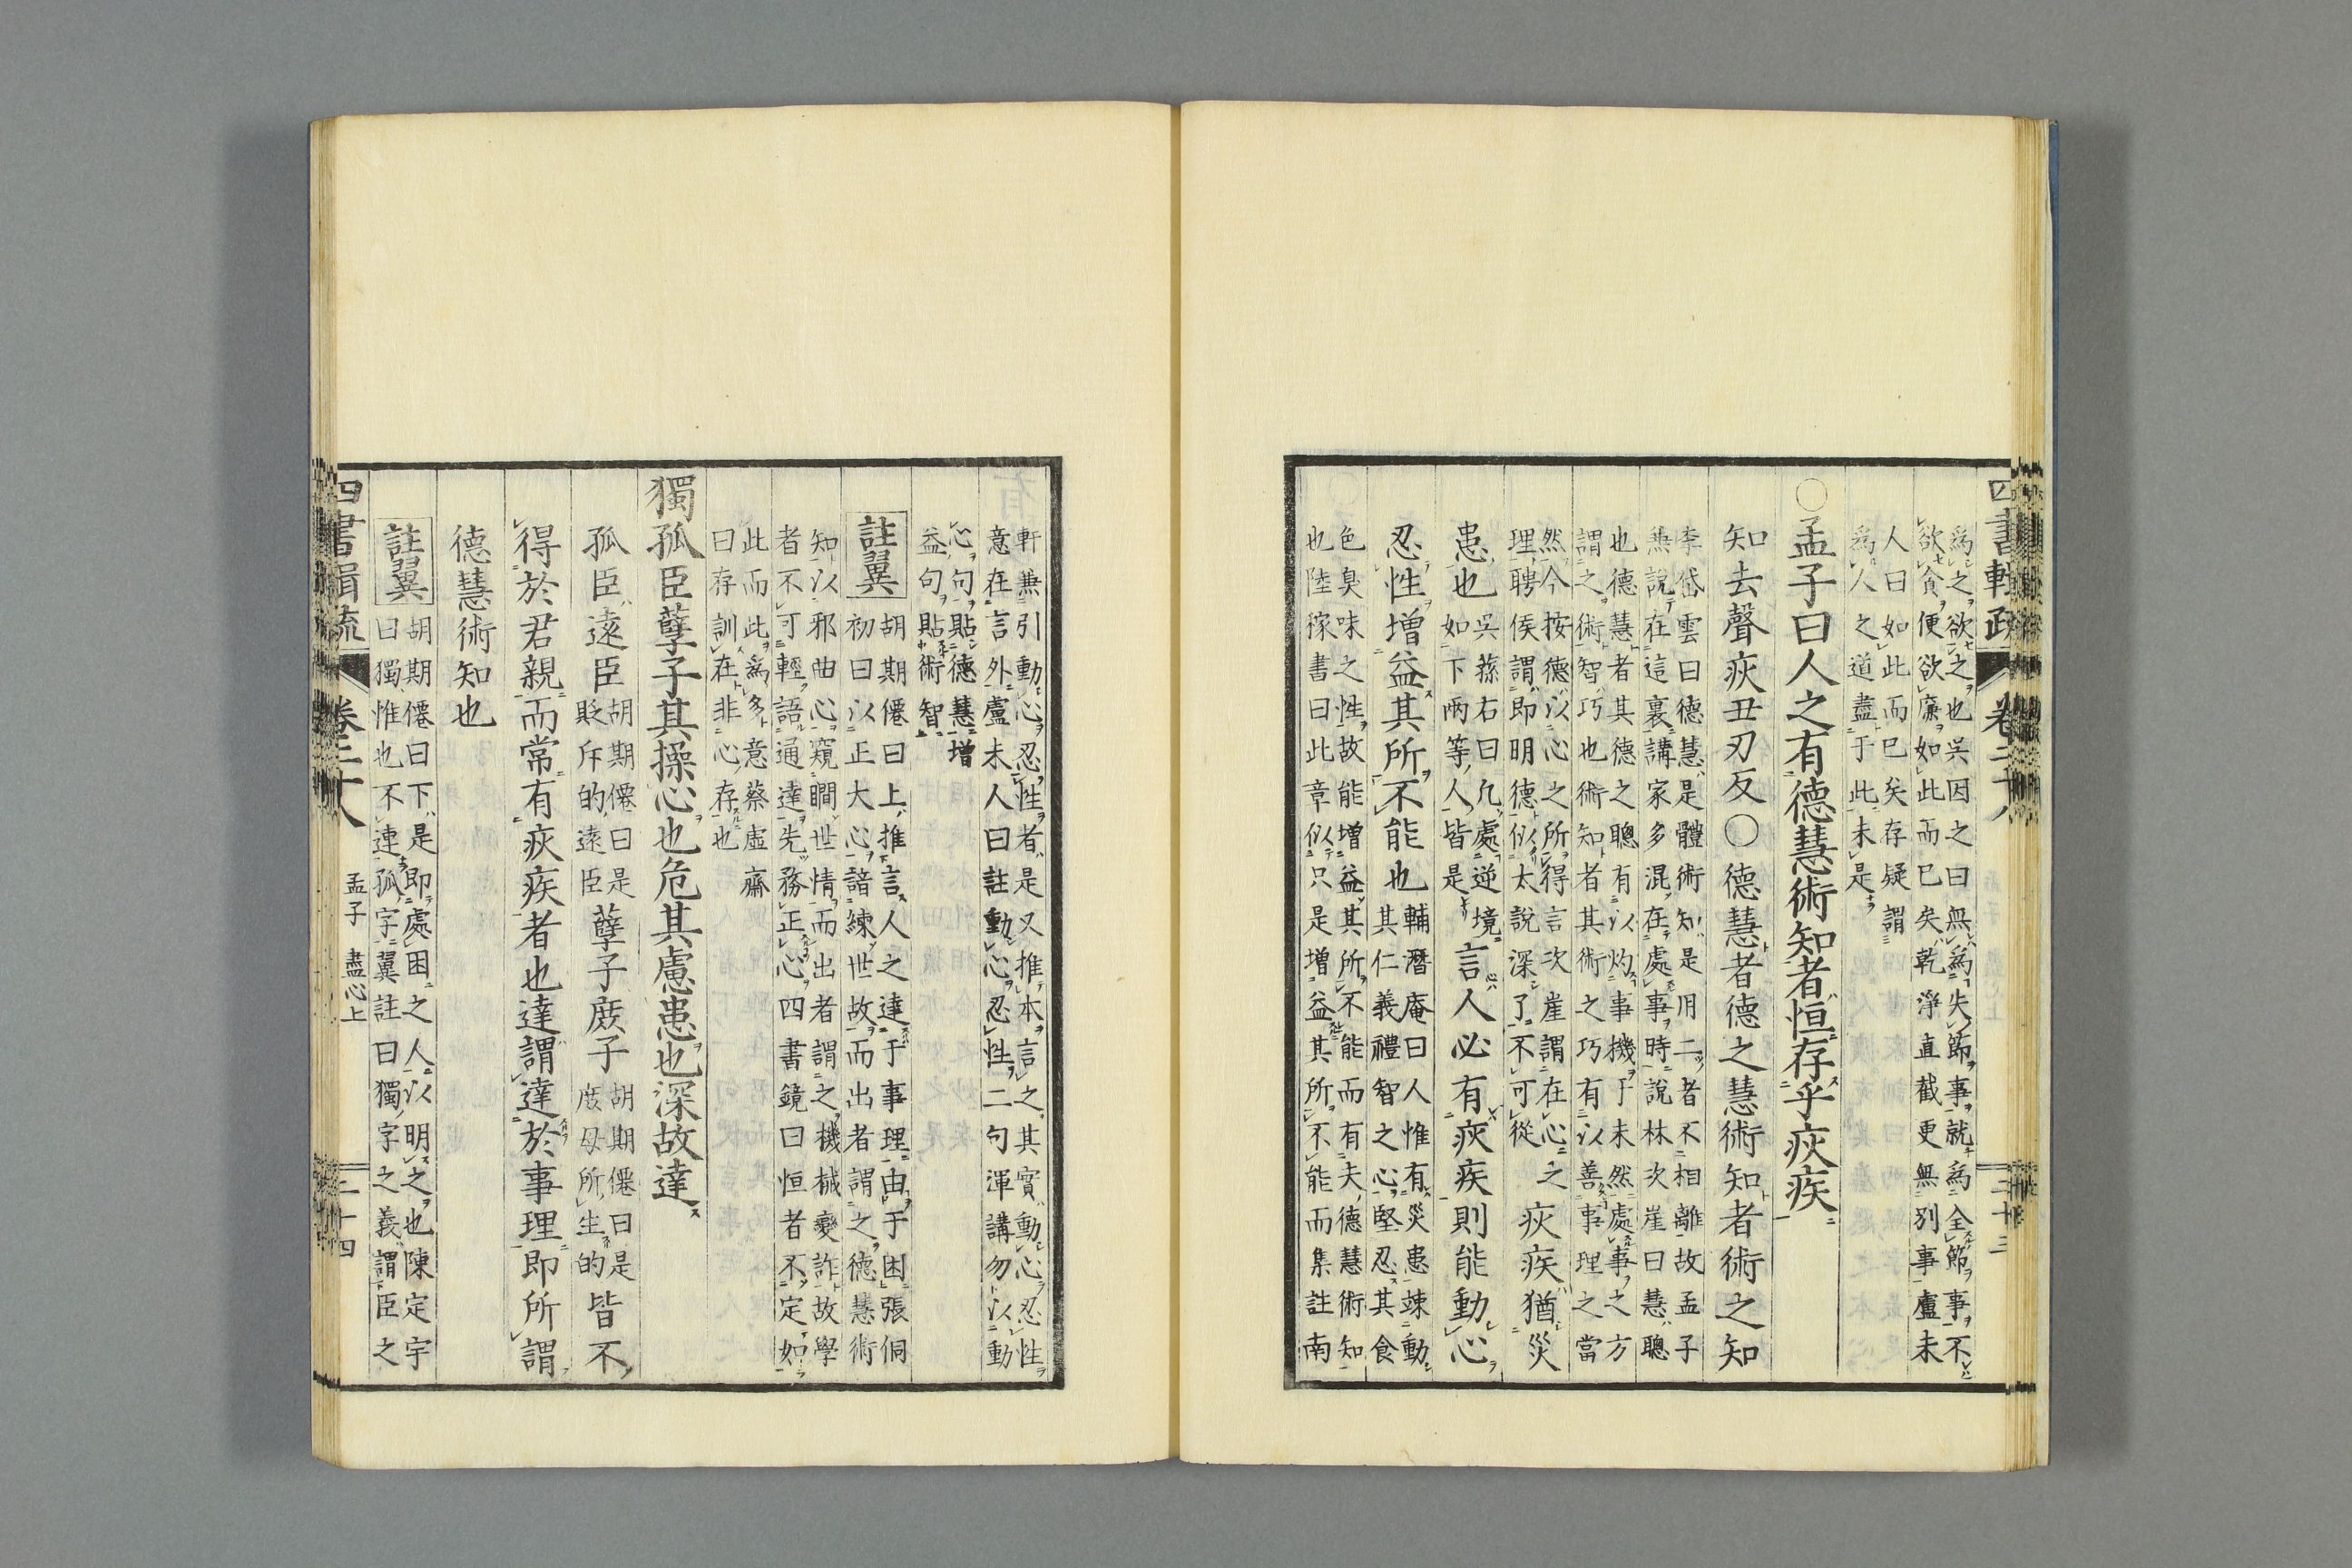 四書輯疏 卷二十八 三十三
為之欲之也吳因之曰無為失節事就為全節事不
欲貪便欲廉如此而已矣乾淨直截更無別事盧未
人曰如此而已矣存疑謂
為人之道盡于此未是
○孟子曰人之有德慧術知者恒存乎疢疾
知去聲疢丑刃反○德慧者德之慧術知者術之知
李岱雲曰德慧是體術知是用二者不相離故孟子
兼說在這裏講家多混在處事時說林次崖曰慧聰
也德慧者其德之聰有以灼事機于未然處事之方
謂之術智巧也術知者其術之巧有以善事理之當
然今按德以心之所得言次崖謂在心之
理聘侯謂即明德似太說深了不可從
疢疾猶災
患也
吳蓀右曰凡處逆境
如下兩等人皆是
言人必有疢疾則能動心
忍性增益其所不能也
輔潛庵曰人惟有災患竦動
其仁義禮智之心堅忍其食
色臭味之性故能增益其所不能而有夫德慧術知
也陸稼書曰此章似只是增益其所不能而集註南
軒兼引動心忍性者是又推本言之其實動心忍性
意在言外盧未人曰註動心忍性二句渾講勿以動
心句貼德慧增
益句貼術智
註翼
胡期僊曰上推言人之達于事理由于困張侗
初曰以正大心諳練世故而出者謂之德慧術
知以邪曲心窺瞷世情而出者謂之機械變詐故學
者不可輕語通達先務正心四書鏡曰恒者不定如
此而此為多意蔡虛齋
曰存訓在非心存也
獨孤臣孽子其操心也危其慮患也深故達
孤臣遠臣
胡期僊曰是
貶斥的遠臣
孽子庶子
胡期僊曰是
庶母所生的
皆不
得於君親而常有疢疾者也達謂達於事理即所謂
德慧術知也
註翼
胡期僊曰下是即處困之人以明之也陳定宇
曰獨惟也不連孤字翼註曰獨字之義謂臣之
四書輯疏 卷二十八 孟子 盡心上 三十四